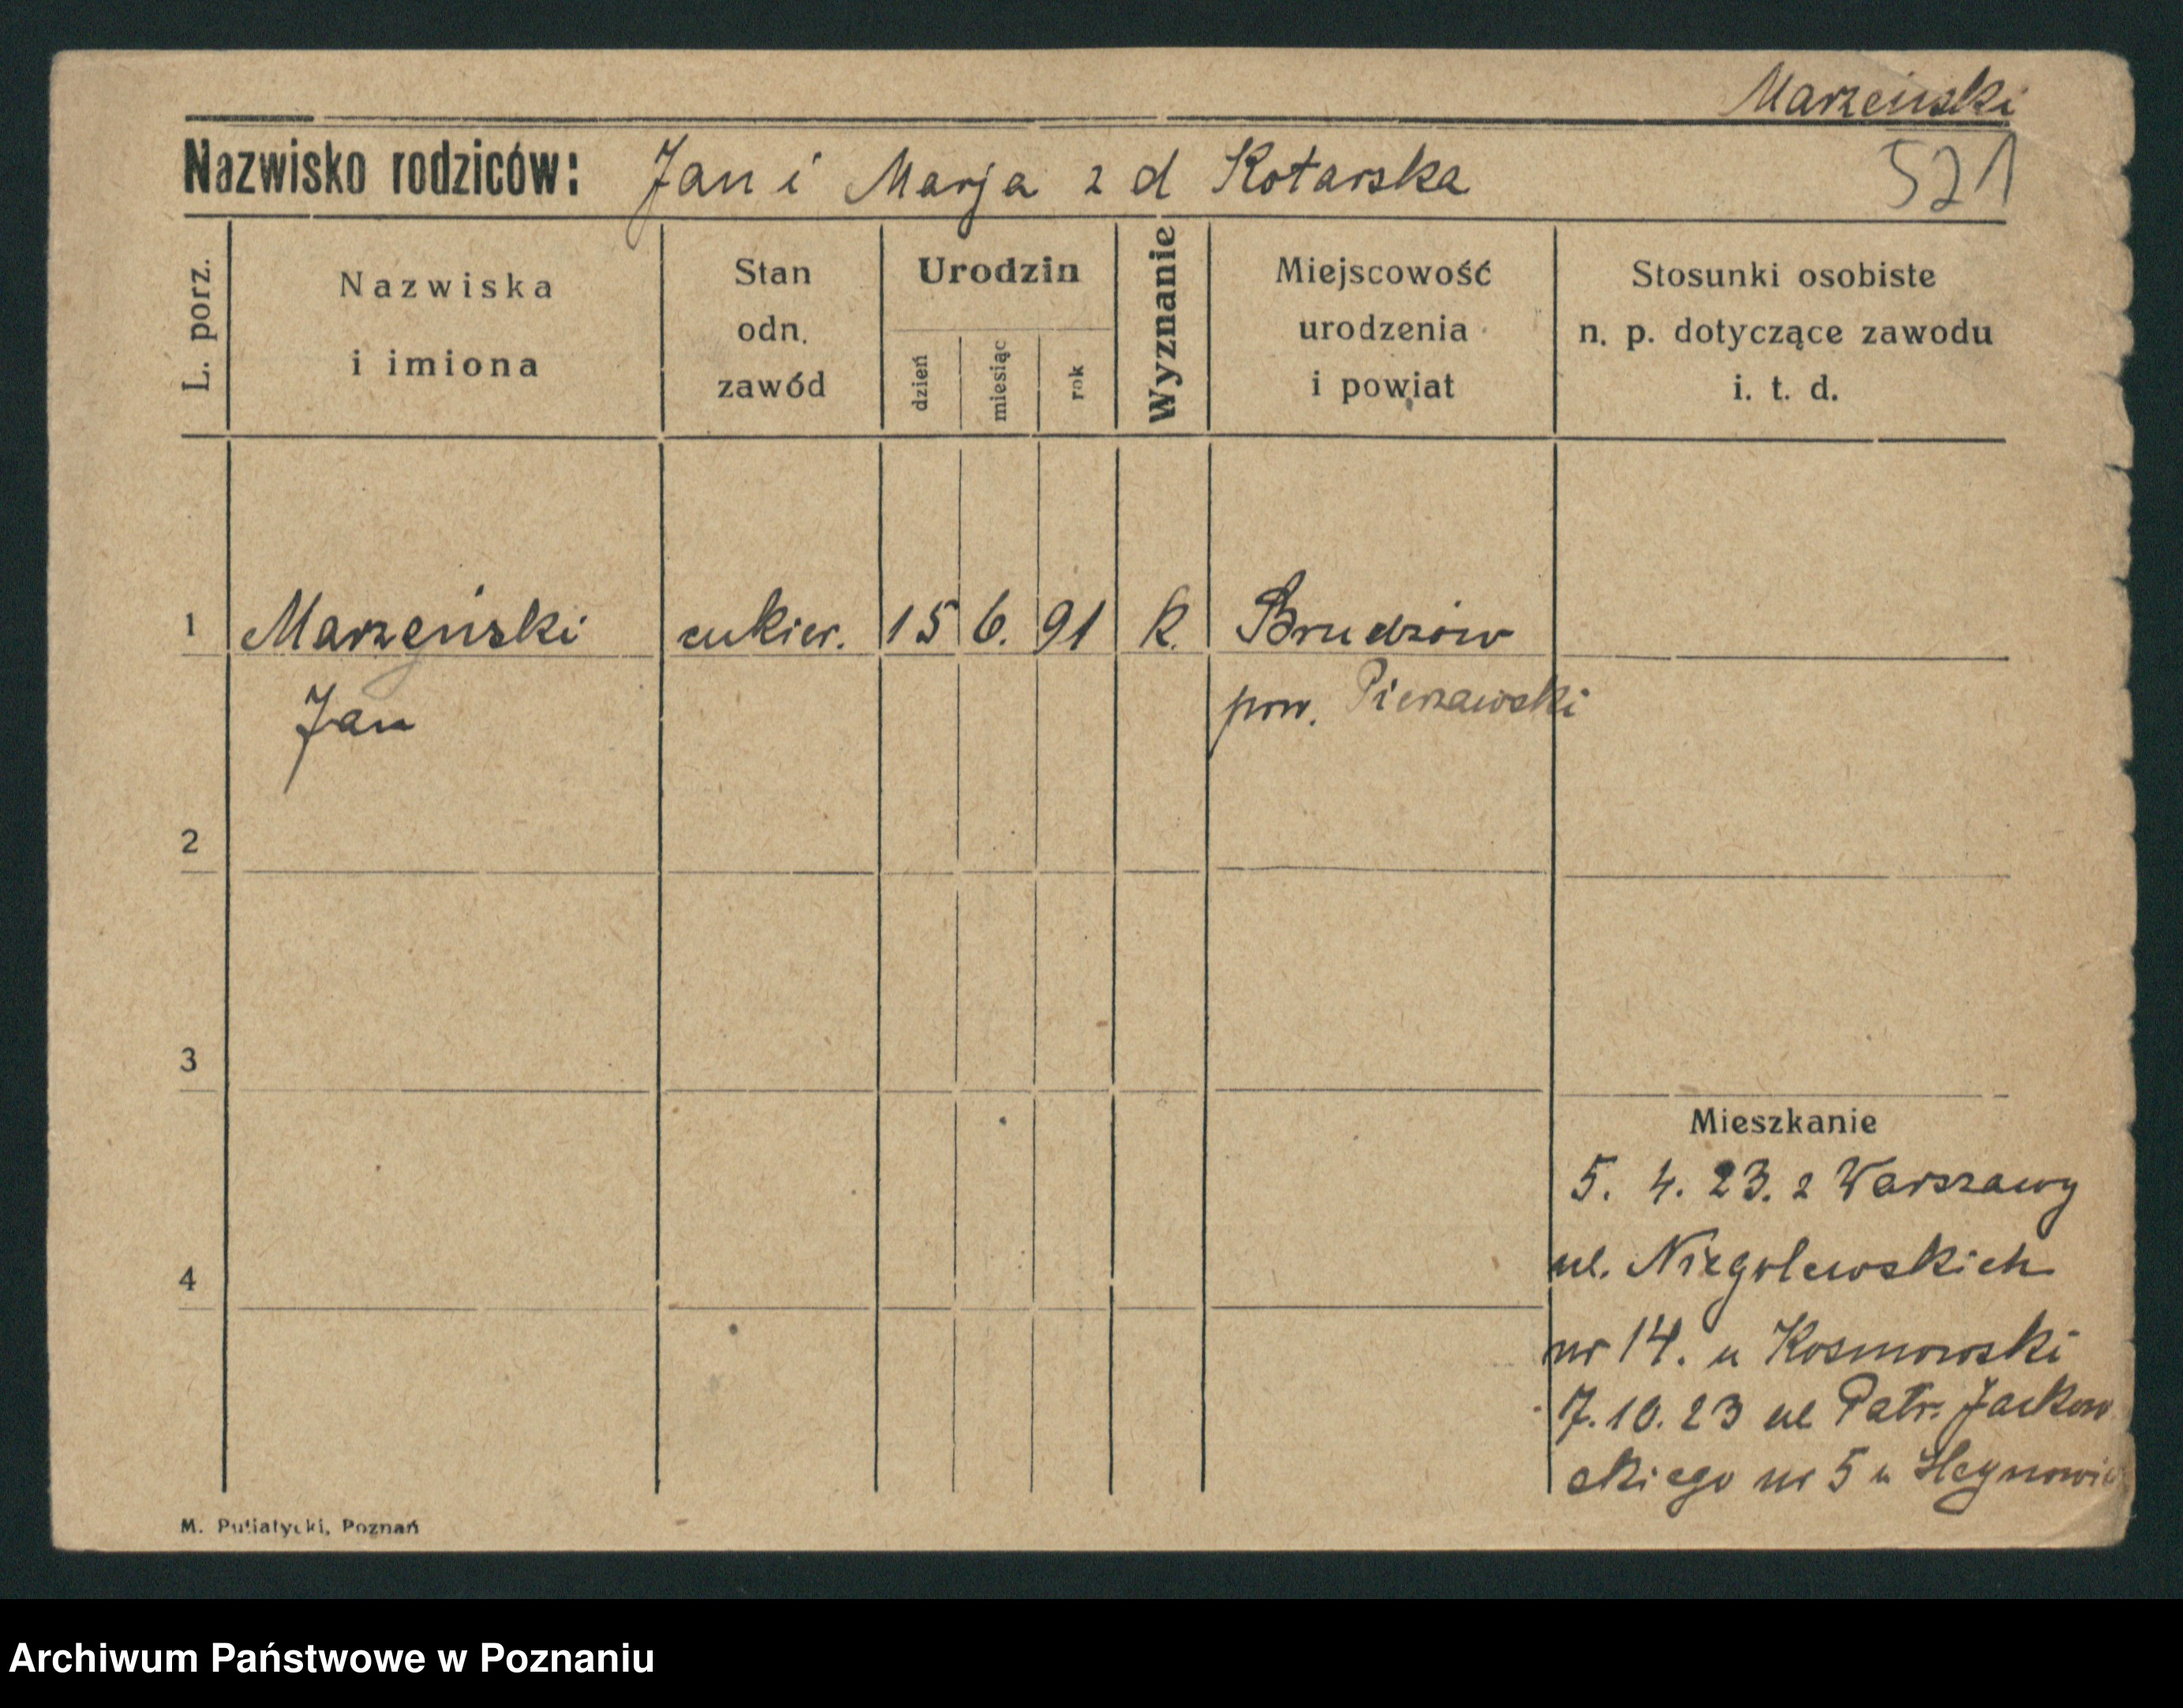 Marzeński
Nazwisko rodziców: Jan i Marja z d Kotarska
521
L. porz.
Nazwiska
i imiona
Stan
odn.
zawód
Urodzin
dzień
miesiąc
rok
Wyznanie
Miejscowość
urodzenia
i powiat
Stosunki osobiste
n. p. dotyczące zawodu
i. t. d.
1 Marzeński cukier. 15 6. 91 k. Brudzów
Jan pow.
2
3
4
Mieszkanie
5. 4. 23. z Warszawy
ul. Niegolewskich
nr 14. u Kosmowski
7.10.23 ul Patr. Jackow
skiego nr 5 u
M. Putiatycki, Poznań
Archiwum Państwowe w Poznaniu